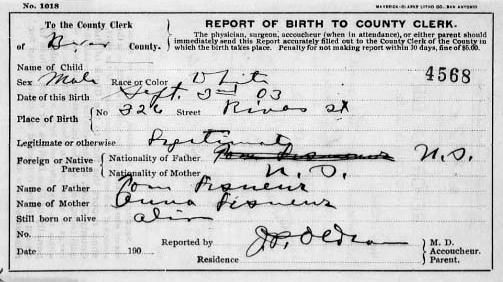 No. 1018
MAVERICK-CLARKE LITHO CO., SAN ANTONIO
To the County Clerk
of Bexar County.
REPORT OF BIRTH TO COUNTY CLERK.
The physician, surgeon, accoucheur (when in attendance), or either parent should
immediately send this Report accurately filled out to the County Clerk of the County in
which the birth takes place. Penalty for not making report within 30 days, fine of $5.00.
Name of Child
4568
Sex Male Race or Color White
Date of this Birth Sept. 3rd 03
Place of Birth No 326 Street Rivas St
Legitimate or otherwise Legitimate
Foreign or Native Parents
Nationality of Father U.S.
Nationality of Mother U.S.
Name of Father Tom
Name of Mother Anna
Still born or alive alive
No.
Reported by
Date 190
Residence
M. D.
Accoucheur.
Parent.